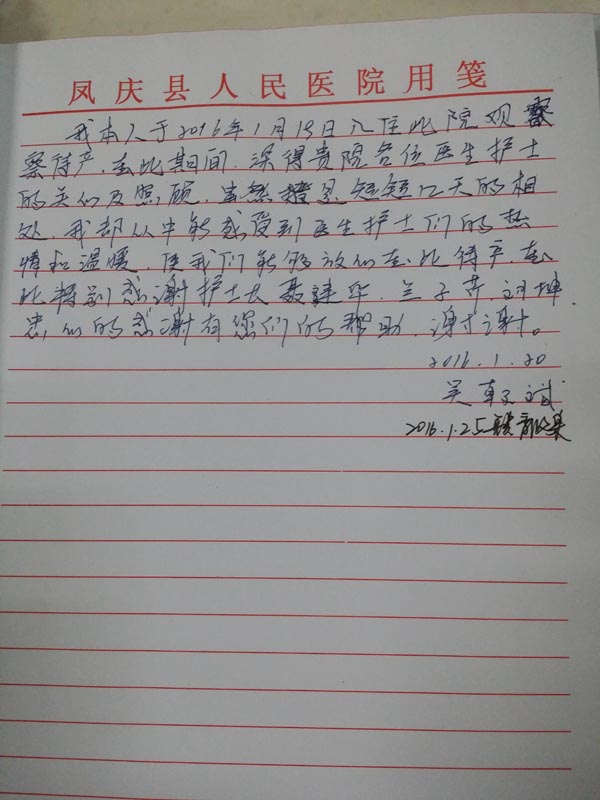 凤庆县人民医院用笺
我本人于2016年1月18日入住此院观
察待产,在此期间,深得贵院各位医生护士
的关心及照顾,虽然 短短几天的相
处,我却从中能感受到医生护士们的热
情和温暖,使我们能够放心在此待产,在
此特别感谢护士长聂建华、兰子芳、刘坤
忠心的感谢有您们的帮助,谢谢。
2016.1.20
吴
2016.1.25